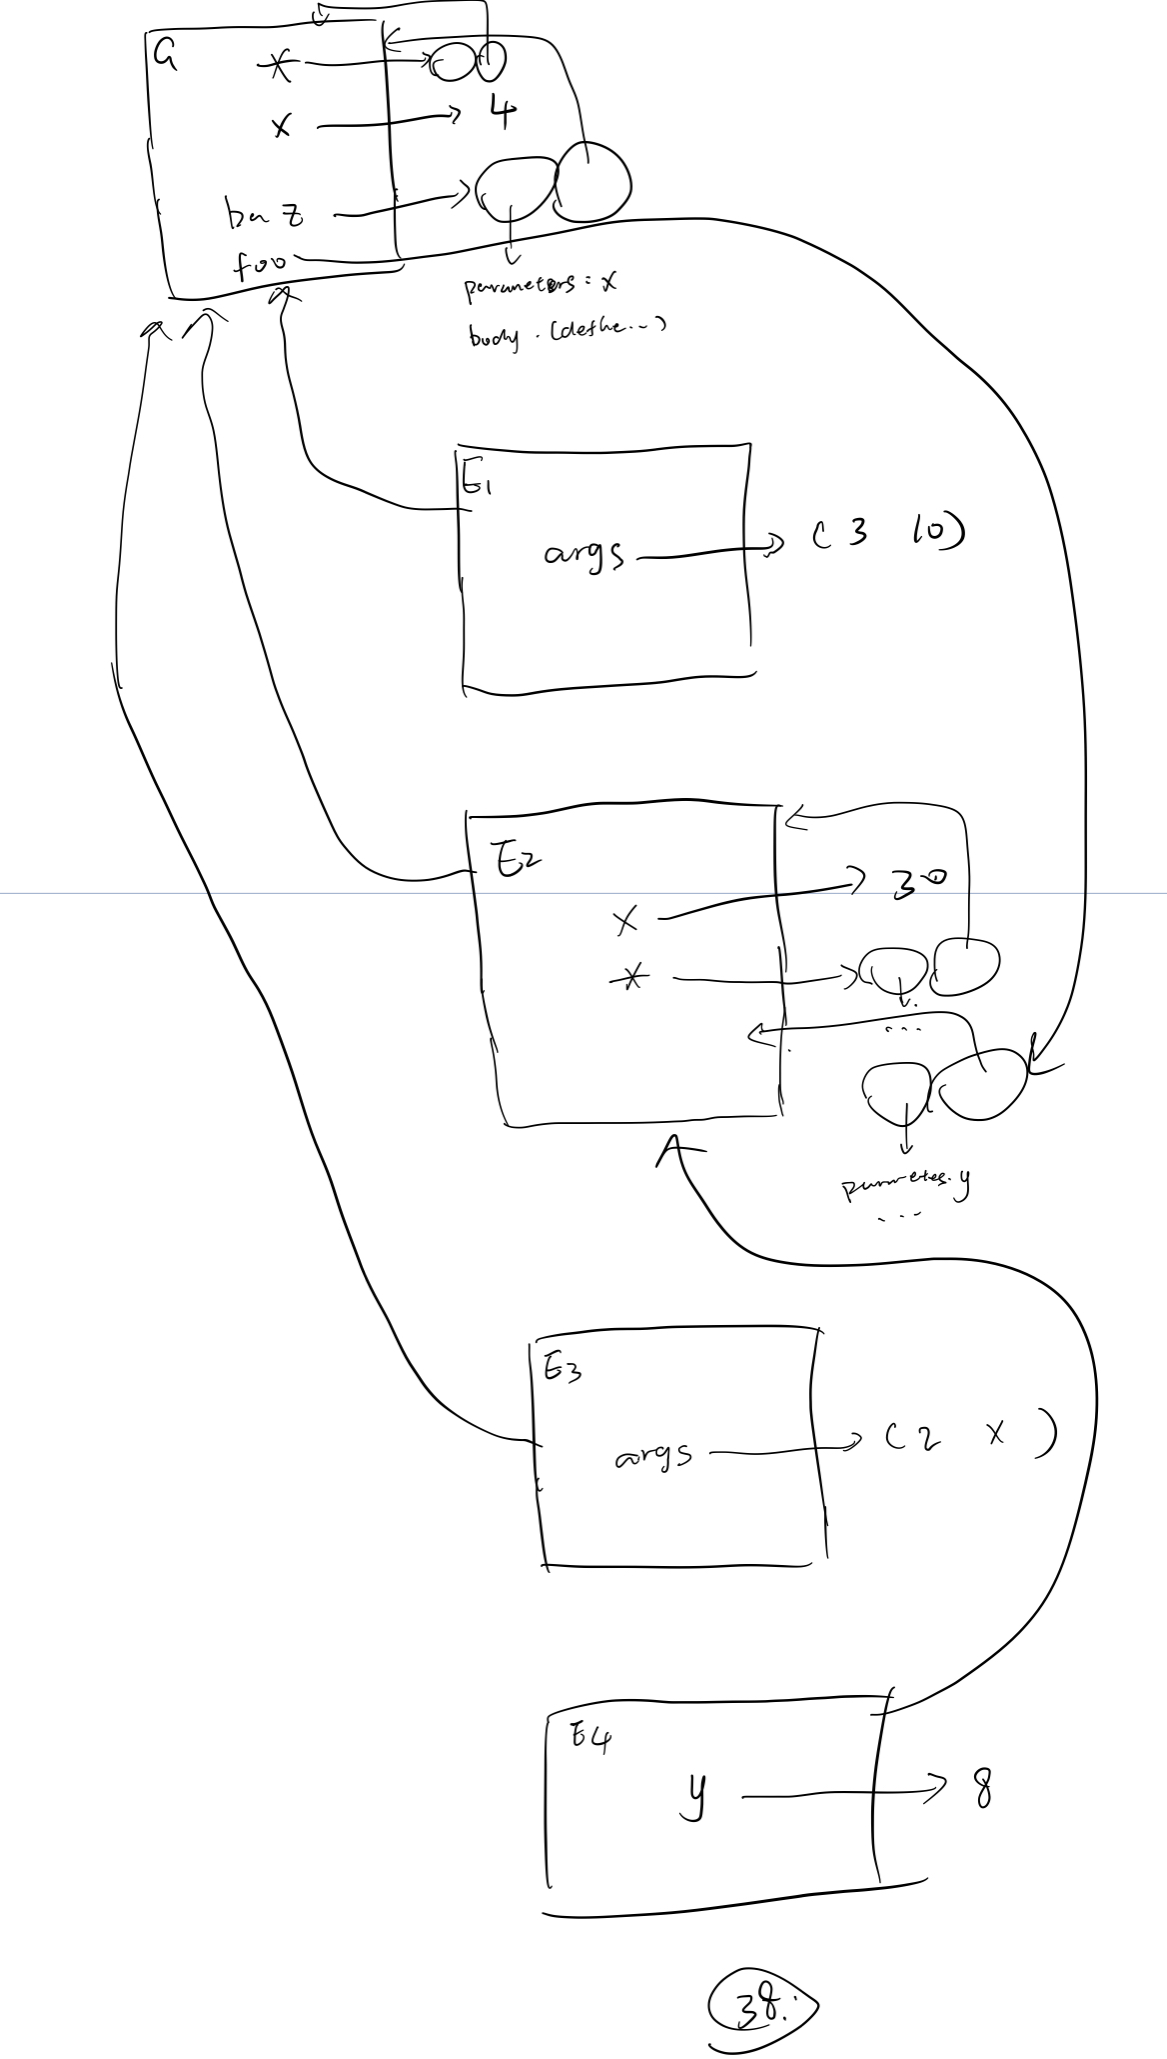 G
*
x → 4
baz
foo
parameters: x
body . (define...)
E1
args → (3 10)
E2
x → 30
*
...
parametes. y
...
E3
args → (2 x)
E4
y → 8
38.